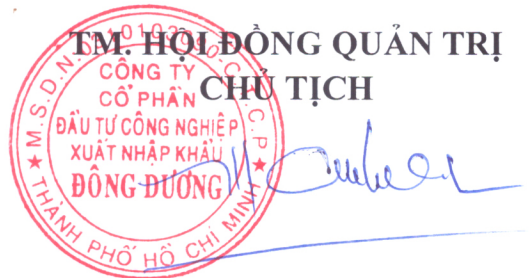 TM. HỘI ĐỒNG QUẢN TRỊ
CHỦ TỊCH
CÔNG TY
CỔ PHẦN
ĐẦU TƯ CÔNG NGHIỆP
XUẤT NHẬP KHẨU
ĐÔNG DƯƠNG
M.S.D.N:
C.T.C.P
THÀNH PHỐ HỒ CHÍ MINH